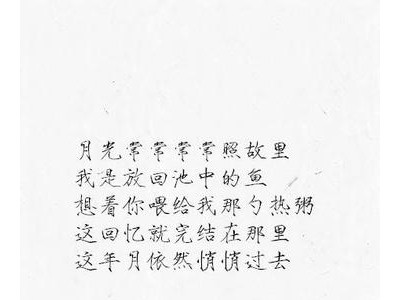 月光常常常常照故里
我是放回池中的鱼
想着你喂给我那勺热粥
这回忆就完结在那里
这年月依然悄悄过去